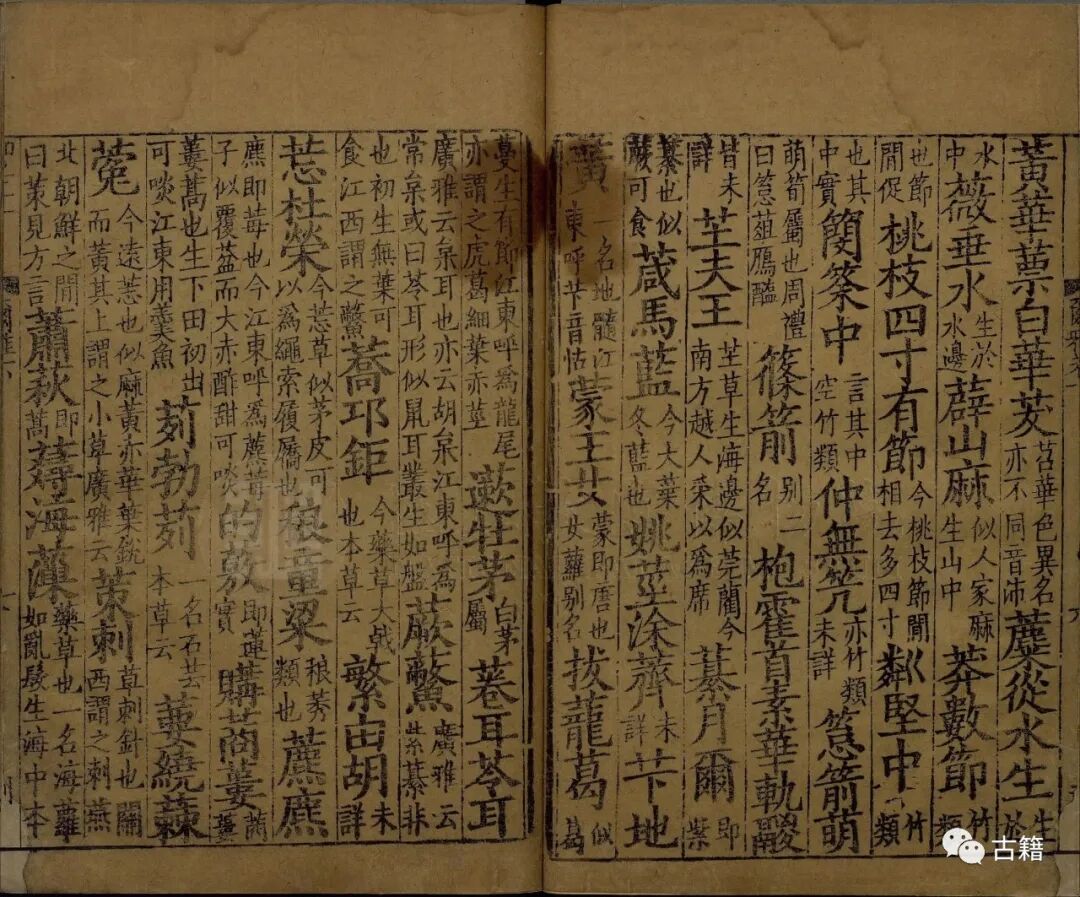 黃華蔈白華茇苕華色異名亦不同音沛蘪從水生生於
水中薇垂水生於水邊薜山麻似人家麻生山中莽數節竹類
也節間促桃枝四寸有節今桃枝節間相去多四寸粼堅中竹類
也其中實簢筡中言其中空竹類仲無笐亦竹類未詳䈚箭萌
萌筍屬也周禮曰䈚菹鴈醢篠箭別二名枹霍首素華軌鬷
皆未詳芏夫王芏草生海邊似莞藺今南方越人采以為席綦月爾即紫
綦也似蕨可食葴馬藍今大葉冬藍也姚莖涂薺未詳芐地
黃一名地髓江東呼芐音怙蒙王女蒙即唐也女蘿別名拔蘢葛似葛
蔓生有節江東呼為龍尾亦謂之虎葛細葉赤莖藗牡茅白茅屬菤耳苓耳
廣雅云枲耳也亦云胡枲江東呼為常枲或曰苓耳形似鼠耳叢生如盤蕨虌廣雅云紫綦非
也初生無葉可食江西謂之虌蕎邛鉅今藥草大戟也本草云繁由胡未詳
莣杜榮今莣草似茅皮可以為繩索履屩也稂童粱稂莠類也藨麃
麃即莓也今江東呼為藨莓子似覆葐而大赤酢甜可啖的薂即蓮實購蔏蔞蔏蔞
蔞蒿也生下田初出可啖江東用羹魚茢勃茢一名石芸本草云葽繞蕀
蒬今遠志也似麻黃赤華葉銳而黃其上謂之小草廣雅云茦刺草刺針也關西謂之刺燕
北朝鮮之間曰茦見方言蕭萩即蒿薚海藻藥草也一名海蘿如亂髮生海中本
古籍